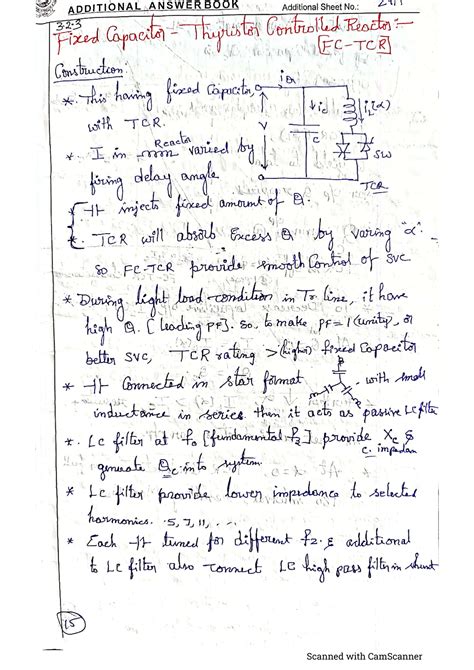 ADDITIONAL ANSWER BOOK
Additional Sheet No.:
3.2.3
Fixed Capacitor - Thyristor Controlled Reactor:-
[FC-TCR]
Construction:
* This having fixed Capacitor
with TCR.
* I in Reactor varied by
firing delay angle
iQ
V
ic
C
iL(α)
SW
TCR
* ⊣⊢ injects fixed amount of Q.
* TCR will absorb Excess Q by varing "α".
so FC-TCR provide smooth Control of SVC
* During light load condition in Tr line, it have
high Q. [leading PF]. So, to make, PF=1(unity), or
better SVC, TCR rating > (higher) fixed Capacitor
* ⊣⊢ Connected in star format - with small
inductance in series. then it acts as passive LC filter
* LC filter at fo [fundamental fz] provide Xc &
c. impedan
generate Qc into system.
* LC filter provide lower impedance to selected
harmonics. 5, 7, 11, . . .
* Each ⊣⊢ tuned for different fz. & additional
to LC filter also connect LC high pass filter in shunt
15
Scanned with CamScanner